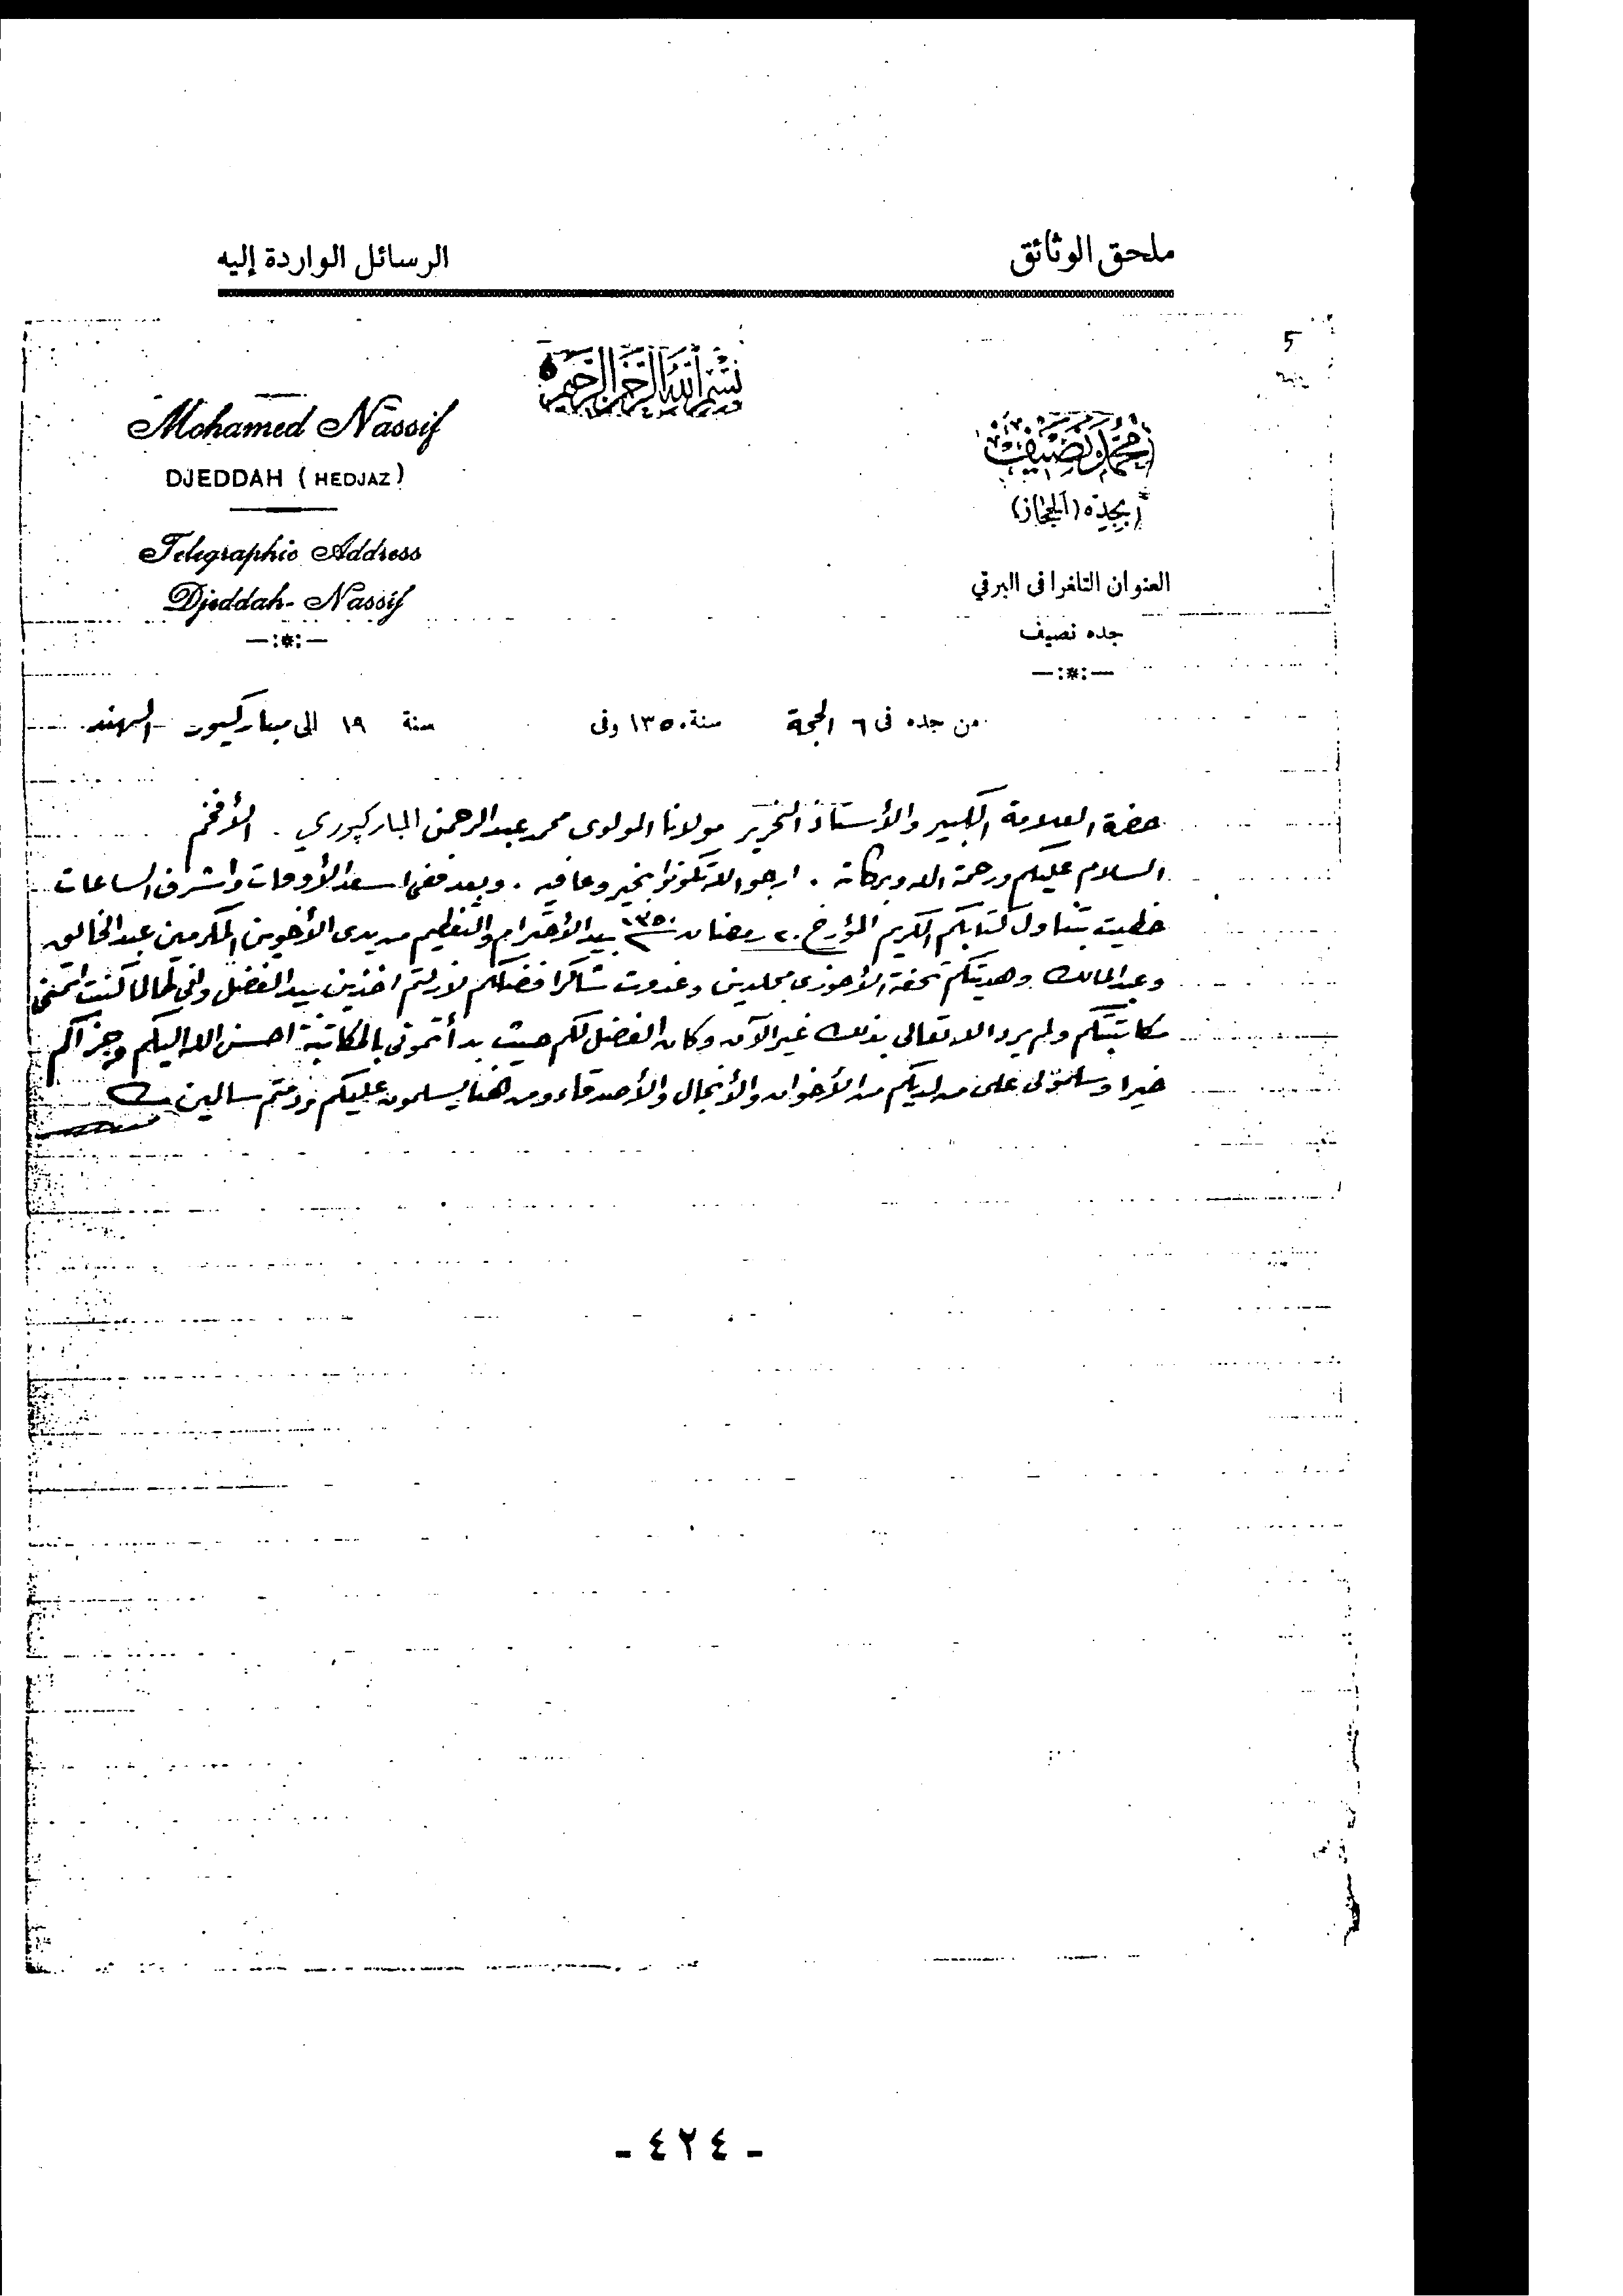 ملحق الوثائق
الرسائل الواردة إليه
بسم الله الرحمن الرحيم
Mohamed Nassif
DJEDDAH (HEDJAZ)
Telegraphic Address
Djeddah-Nassif
محمد نصيف
بجدة (الحجاز)
العنوان التلغرافى البرقي
جده نصيف
من جده فى ٦ الحجة سنة ١٣٥٠ وفى سنة ١٩ الى مباركپور - الهند
حضرة العلامة الكبير والأستاذ النحرير مولانا المولوى محمد عبدالرحمن المباركپوري . الأفخم
السلام عليكم ورحمة الله وبركاته . ارجو الله تكونوا بخير وعافيه . وبعد ففى اسعد الأوقات واشرف الساعات
حظيت بتناول كتابكم الكريم المؤرخ ٢٠ رمضان ١٣٥٠ بيد الأحترام والتعظيم من يدى الأخوين المكرمين عبدالخالق
وعبدالمالك وهديتكم تحفة الأحوزى مجلدين وغدوت شاكرا فضلكم لازلتم اخذين بيد الفضل واني لطالما كنت اتمنى
مكاتبتكم ولم يرد الله تعالى بذلك غير الآن وكان الفضل لكم حيث بدأتمونى بالمكاتبة احسن الله اليكم وجزاكم
خيرا وسلمولى على من لديكم من الأخوان والأنجال والأصدقاء ومن هنا يسلمون عليكم ودمتم سالمين
- ٤٢٤ -